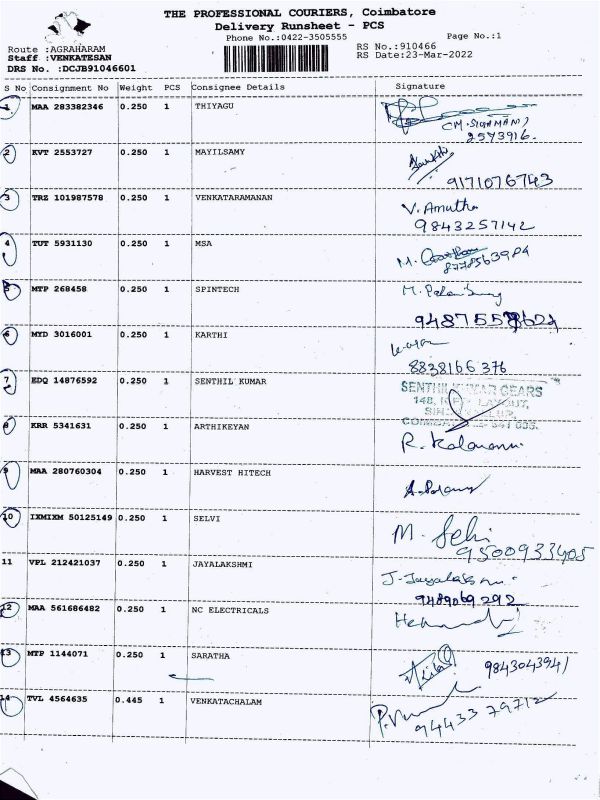 THE PROFESSIONAL COURIERS, Coimbatore
Delivery Runsheet - PCS
Phone No.:0422-3505555 Page No.:1
Route :AGRAHARAM RS No.:910466
Staff :VENKATESAN RS Date:23-Mar-2022
DRS No. :DCJB91046601
S No Consignment No Weight PCS Consignee Details Signature
1 MAA 283382346 0.250 1 THIYAGU
(M.SIVAMANI)
2573916.
2 KVT 2553727 0.250 1 MAYILSAMY
9171076743
3 TRZ 101987578 0.250 1 VENKATARAMANAN V. Amutha
9843257142
4 TUT 5931130 0.250 1 MSA M.
5 MTP 268458 0.250 1 SPINTECH M.
6 MYD 3016001 0.250 1 KARTHI
8838166376
7 EDQ 14876592 0.250 1 SENTHIL KUMAR SENTHIL KUMAR GEARS
148, LAYOUT,
8 KRR 5341631 0.250 1 ARTHIKEYAN
R.
9 MAA 280760304 0.250 1 HARVEST HITECH
10 IXMIXM 50125149 0.250 1 SELVI
M. Selvi
9500933405
11 VPL 212421037 0.250 1 JAYALAKSHMI J. Jayalakshmi
9489069292
12 MAA 561686482 0.250 1 NC ELECTRICALS
13 MTP 1144071 0.250 1 SARATHA
9843043941
14 TVL 4564635 0.445 1 VENKATACHALAM
9443379712